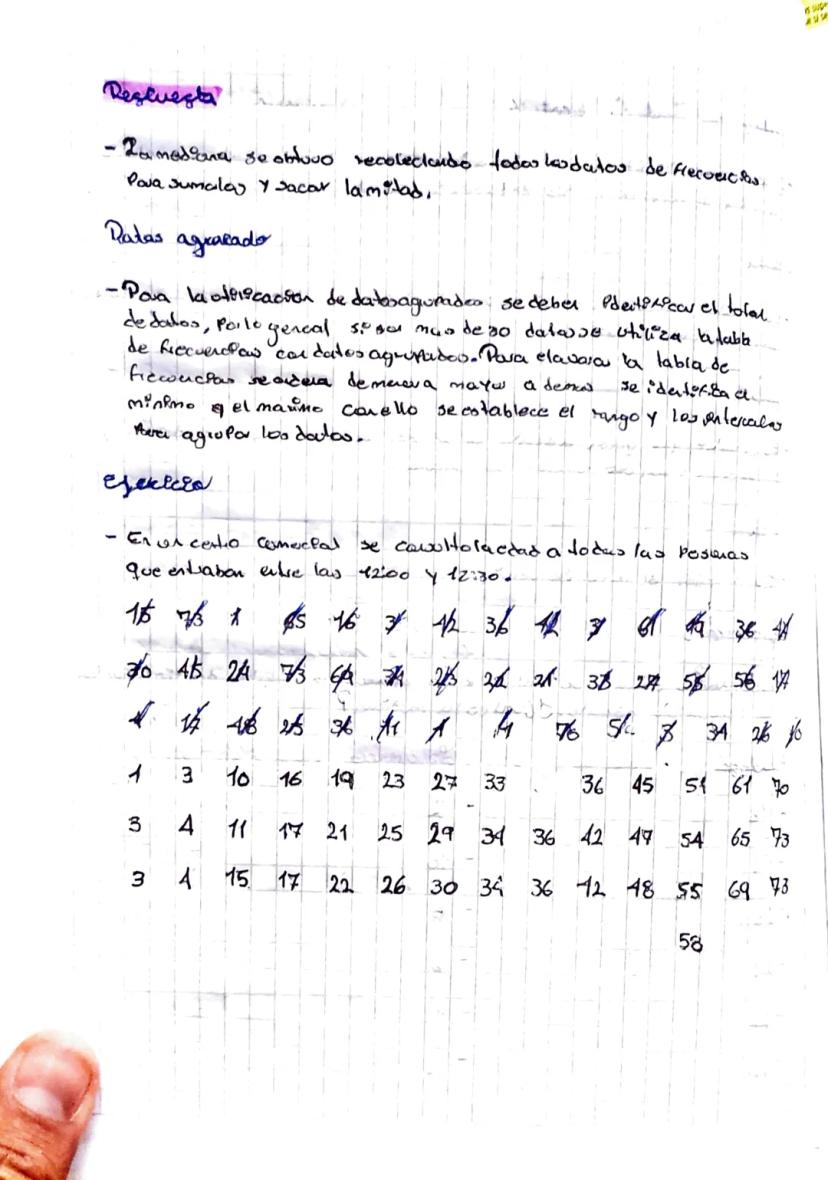 Respuesta
- La mediana se obtuvo recolectando todos los datos de frecuencias
Para sumalos y sacar la mitad.
Datos agrupado
- Para la de datos agurpados se deber identificar el total
de datos, Por lo general si son mas de 30 datos se utiliza la tabla
de frecuencias con datos agrupados. Para elavora la tabla de
frecuencias se ordena de menor a mayor a demas se identifica el
minimo y el maximo con ello se establece el rango y los intervalos
Para agrupar los datos.
Ejercicio
- En un centro comercial se la edad a todas las Personas
que entraban entre las 12:00 y 12:30.
15 73 1 65 16 3 42 36 42 3 61 19 36 47
30 45 29 73 69 34 23 22 21 33 27 55 58 17
4 17 48 25 36 11 4 70 51 3 34 26 10
1 3 10 16 19 23 27 33 36 45 51 61 70
3 4 11 17 21 25 29 34 36 42 47 54 65 73
3 4 15 17 22 26 30 34 36 42 48 55 69 73
58